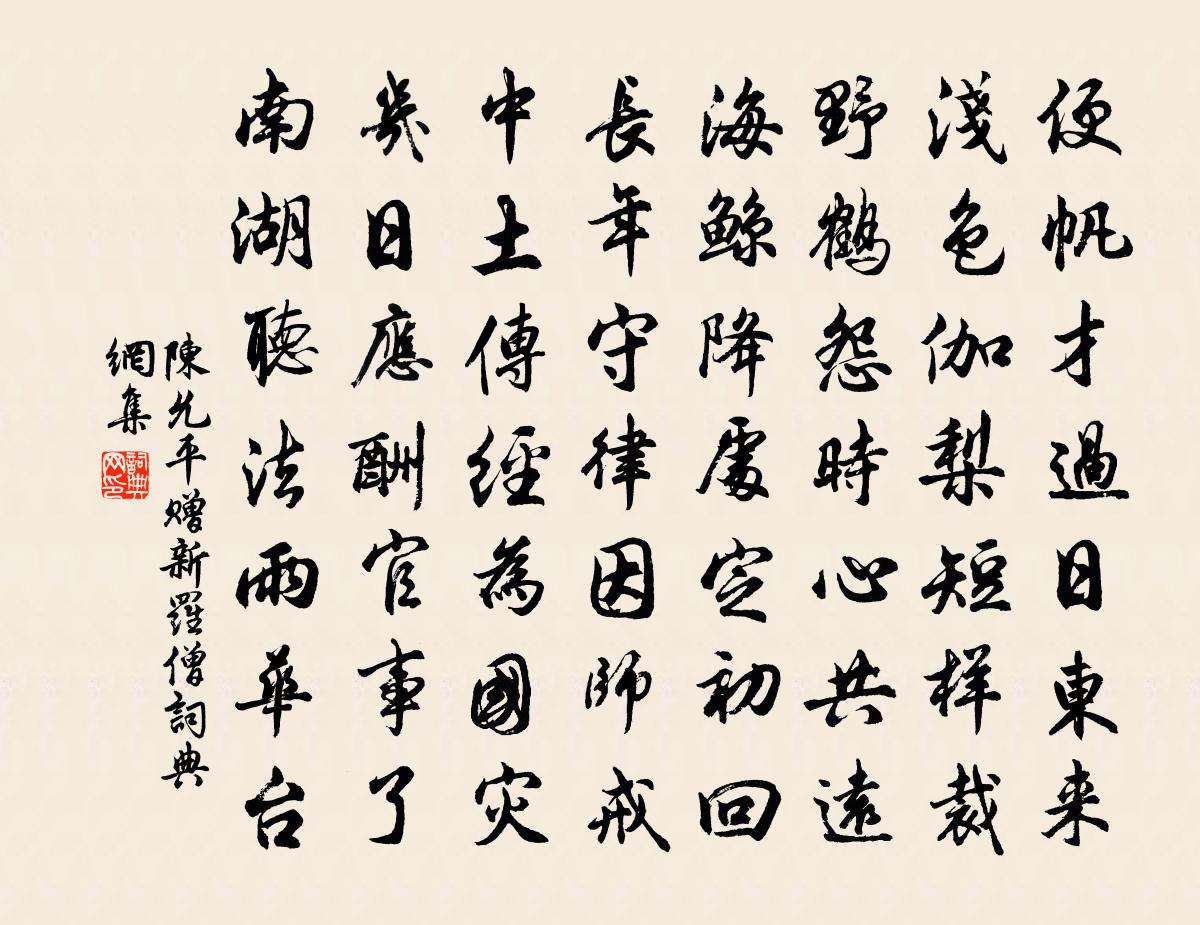 便帆才過日東来
淺色伽梨短样裁
野鶴怨時心共遠
海鲸降處定初回
長年守律因師戒
中土傳經為國灾
幾日應酬官事了
南湖聽法雨華台
陳允平赠新羅僧詞典
網集
詞典网印